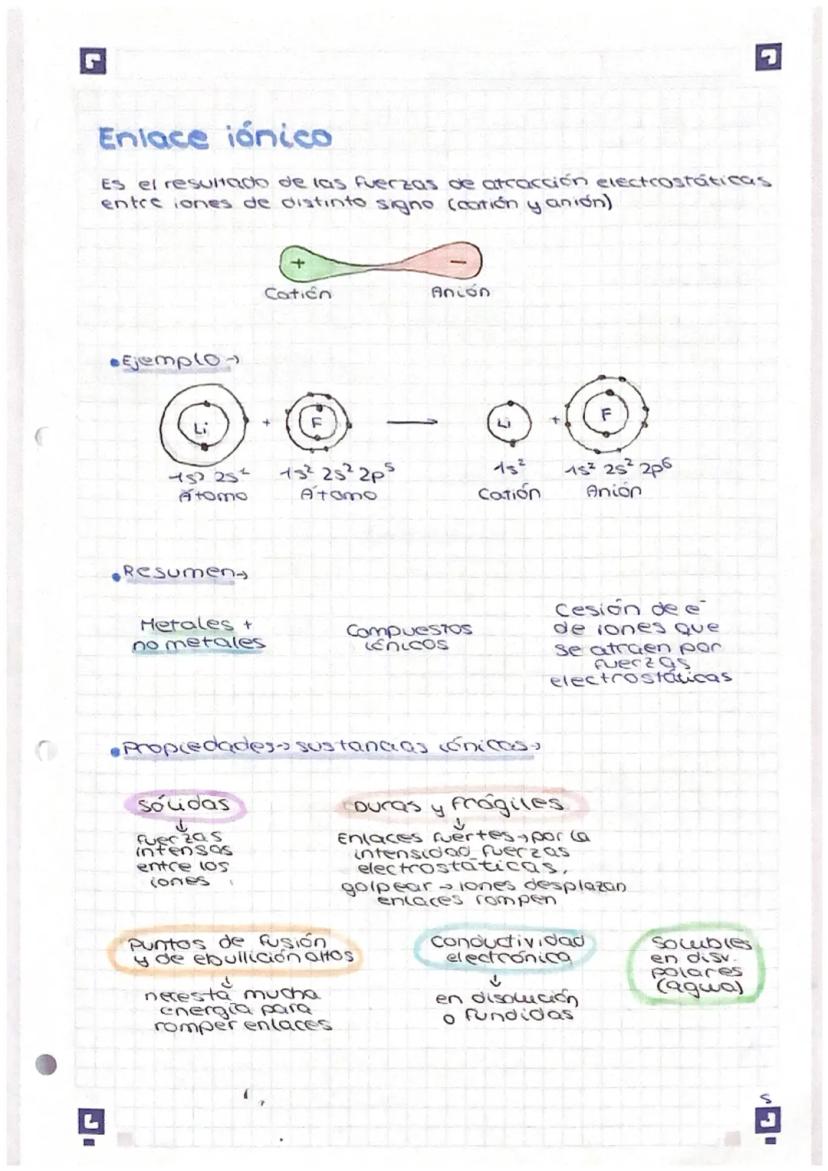 Enlace iónico
Es el resultado de las fuerzas de atracción electrostáticas
entre iones de distinto signo (catión y anión)
+ −
Catión Anión
•Ejemplo→
Li + F → Li + F
1s² 2s¹ 1s² 2s² 2p⁵ 1s² 1s² 2s² 2p⁶
Átomo Átomo Catión Anión
•Resumen→
Metales +
no metales
Compuestos
iónicos
Cesión de e⁻
de iones que
se atraen por
fuerzas
electrostáticas
•Propiedades→sustancias iónicas→
Sólidas
↓
fuerzas
intensas
entre los
iones
Duras y frágiles
↓
Enlaces fuertes→por la
intensidad fuerzas
electrostáticas,
golpear→iones desplazan
enlaces rompen
Puntos de fusión
y de ebullición altos
↓
necesita mucha
energía para
romper enlaces
Conductividad
electrónica
↓
en disolución
o fundidas
Solubles
en disv.
polares
(agua)